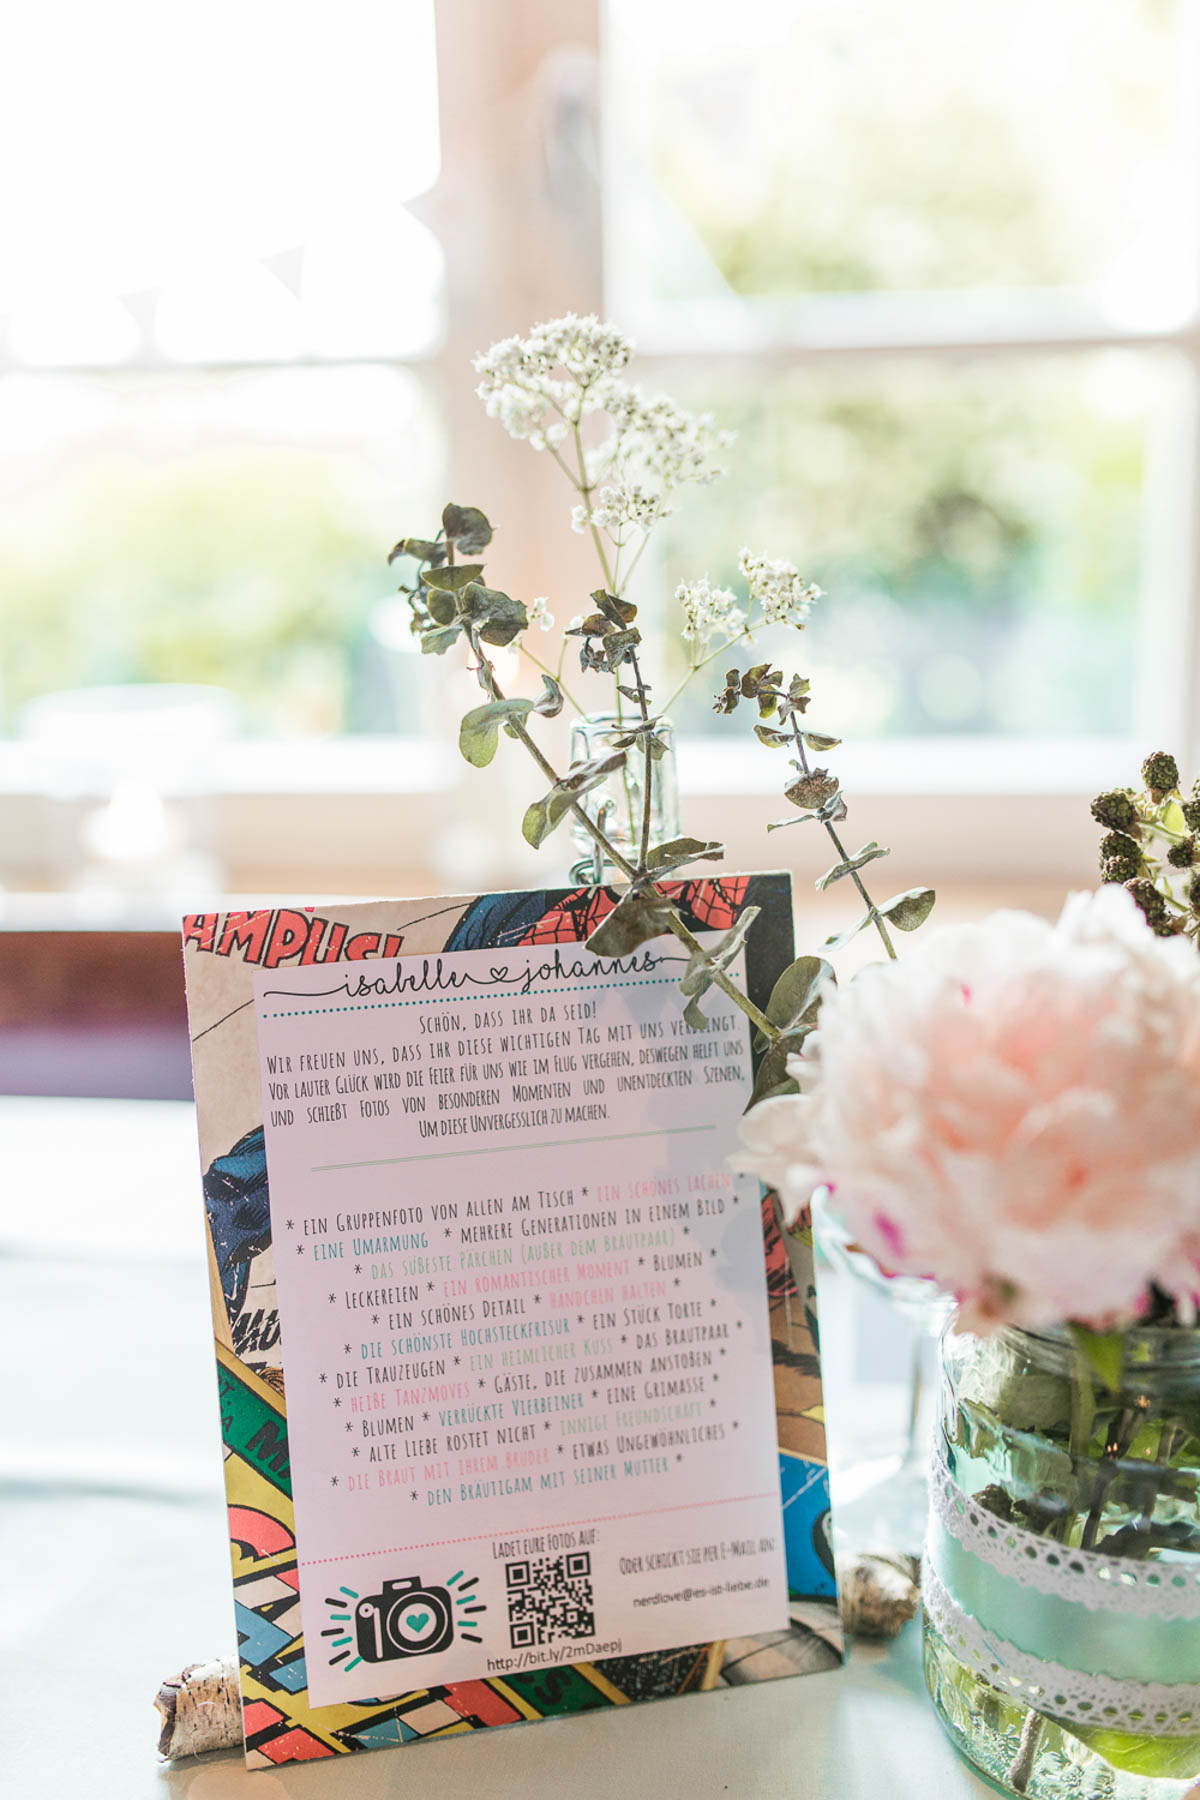 AMPUS!
isabelle johannes
Schön, dass ihr da seid!
Wir freuen uns, dass ihr diese wichtigen Tag mit uns verbringt.
Vor lauter Glück wird die Feier für uns wie im Flug vergehen, deswegen helft uns
und schießt Fotos von besonderen Momenten und unentdeckten Szenen,
um diese Unvergesslich zu machen.
* ein Gruppenfoto von allen am Tisch * ein schönes Lachen *
* eine Umarmung * mehrere Generationen in einem Bild *
* das süßeste Pärchen (außer dem Brautpaar) *
* Leckereien * ein romantischer Moment * Blumen *
* ein schönes Detail * Händchen halten *
* die schönste Hochsteckfrisur * ein Stück Torte *
* die Trauzeugen * ein heimlicher Kuss * das Brautpaar *
* heiße Tanzmoves * Gäste, die zusammen anstoßen *
* Blumen * verrückte Vierbeiner * eine Grimasse *
* alte Liebe rostet nicht * innige Freundschaft *
* die Braut mit ihrem Bruder * etwas Ungewohnliches *
* den Bräutigam mit seiner Mutter *
Ladet eure Fotos auf:
http://bit.ly/2mDaepj
Oder schickt sie per E-Mail an:
nerdlove@es-ist-liebe.de